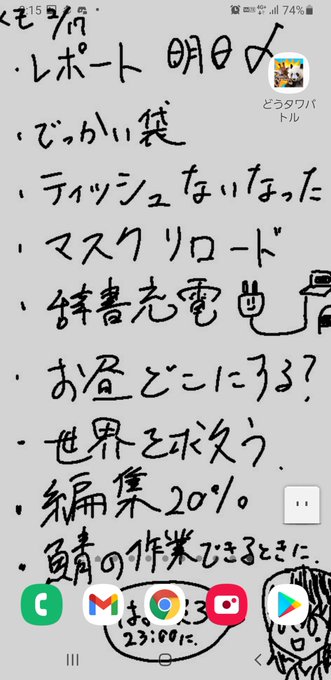 9:15 74%
メモ 2/17
・レポート 明日〆
どうタワバトル
・でっかい袋
・ティッシュなくなった
・マスクリロード
・辞書充電
・お昼どこにする?
・世界を求文う
・編集20%
・鯖の作業できるときに
23:00に